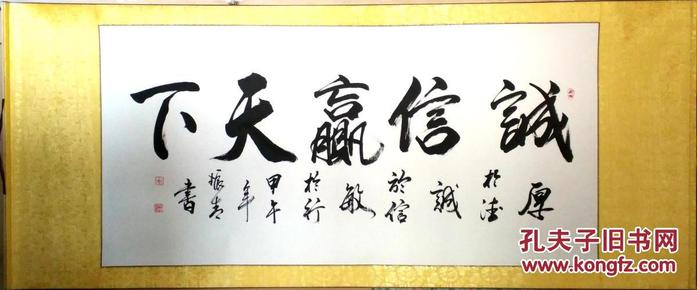 誠信贏天下
厚於德
誠於信
敏於行
甲午年
振青書
孔夫子旧书网
www.kongfz.com